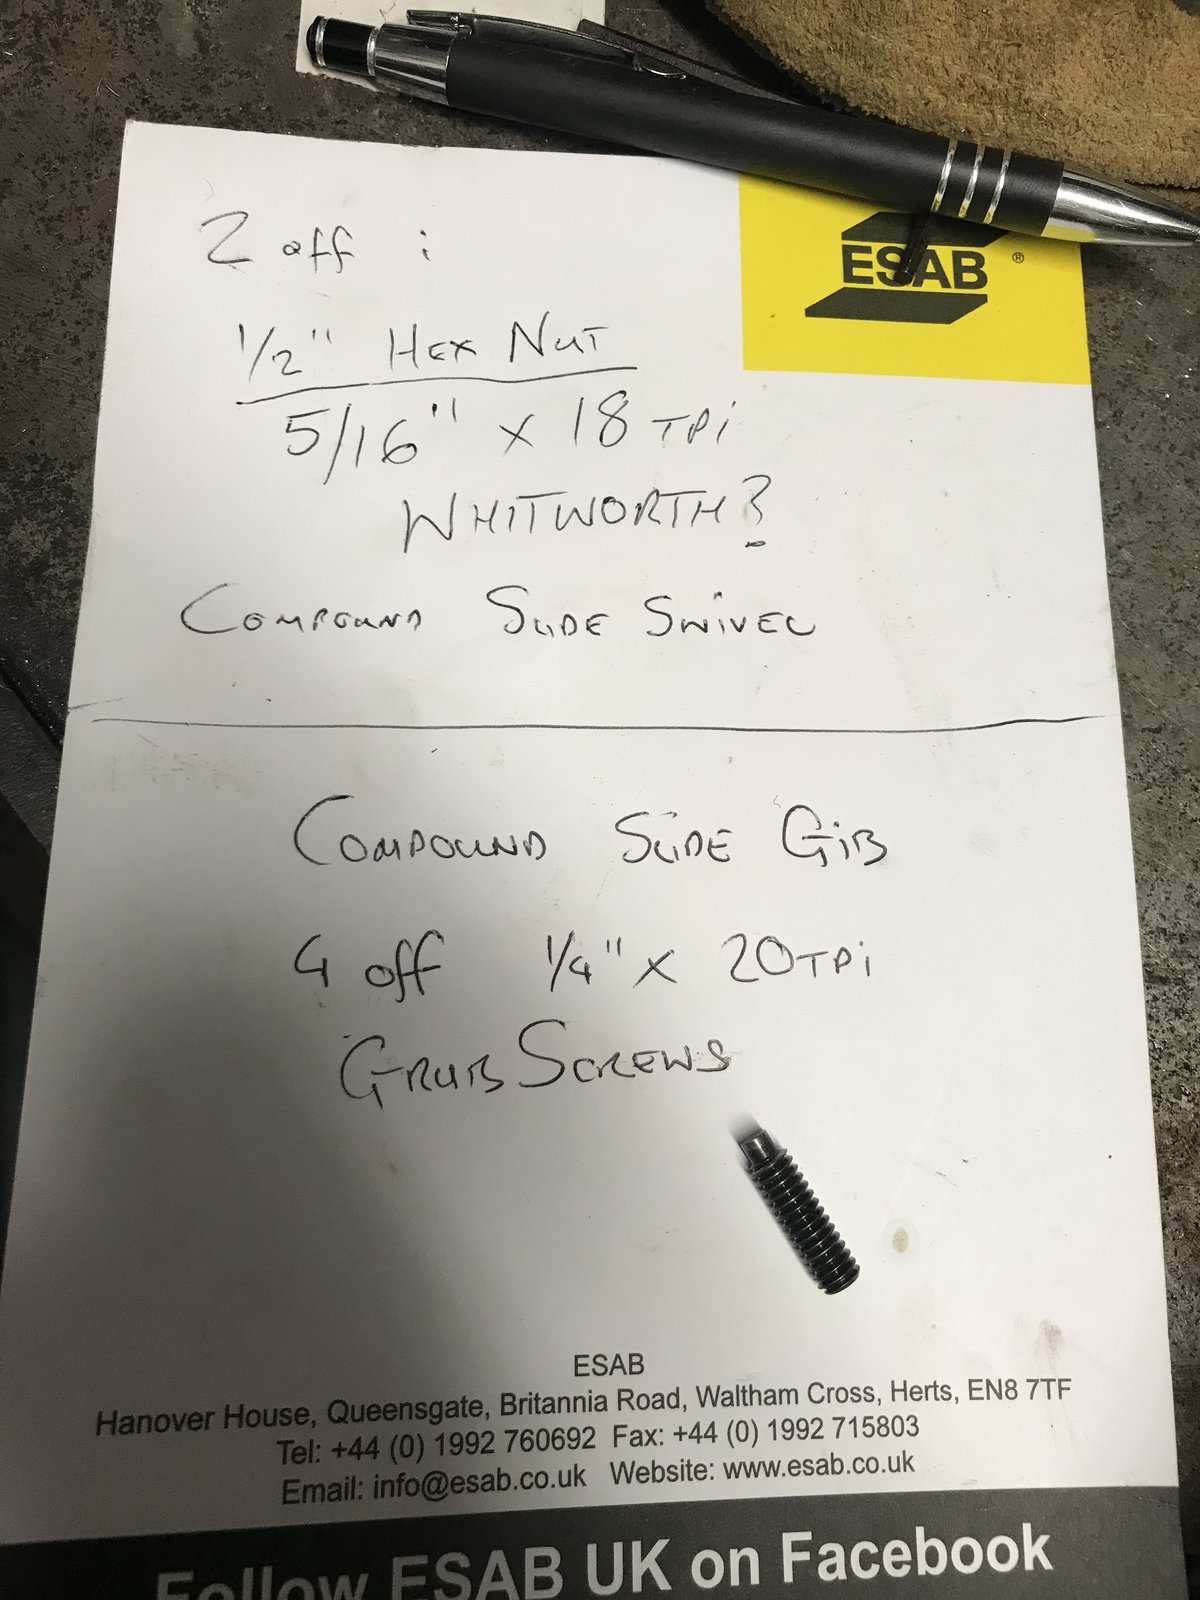 ESAB ®
2 off :
1/2" HEX NUT
5/16" x 18 TPi
WHITWORTH?
COMPOUND SLIDE SWIVEL
COMPOUND SLIDE GiB
4 off 1/4" x 20TPi
GRUB SCREWS
ESAB
Hanover House, Queensgate, Britannia Road, Waltham Cross, Herts, EN8 7TF
Tel: +44 (0) 1992 760692 Fax: +44 (0) 1992 715803
Email: info@esab.co.uk Website: www.esab.co.uk
Follow ESAB UK on Facebook